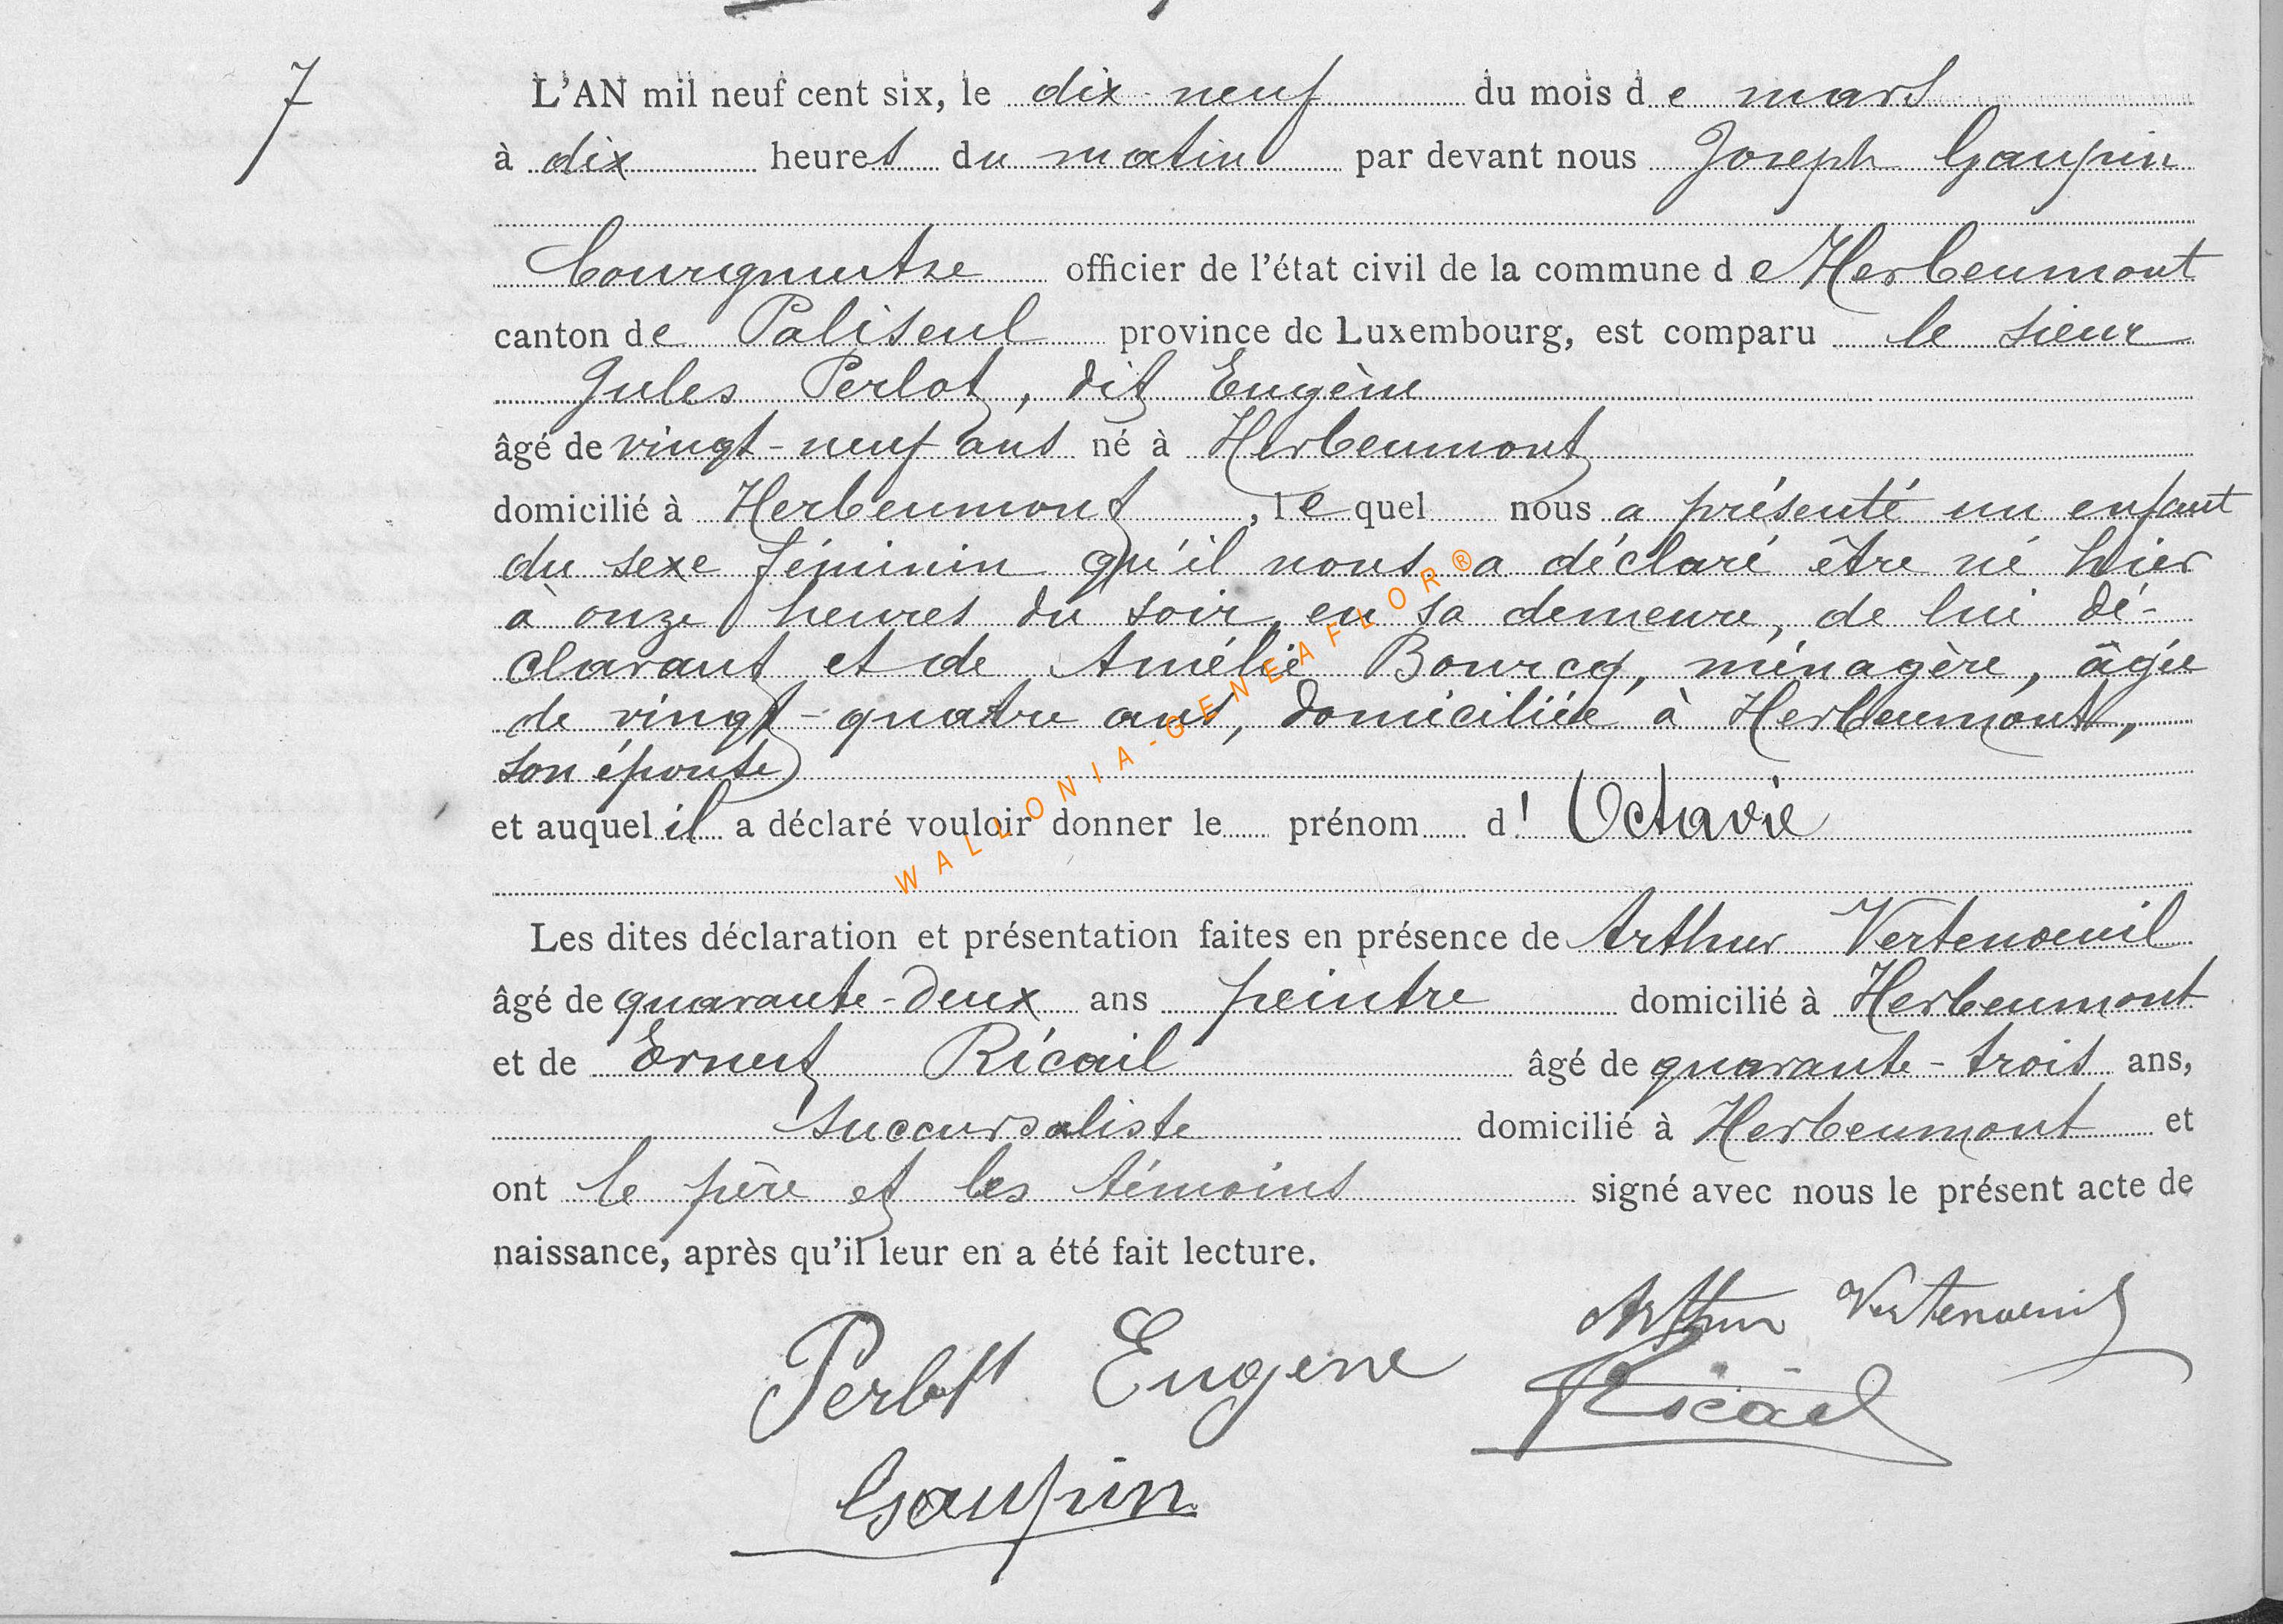 7
L'AN mil neuf cent six, le dix-neuf du mois de mars
à dix heures du matin par devant nous Joseph Gaupin
Bourgmestre officier de l'état civil de la commune de Herbeumont
canton de Paliseul province de Luxembourg, est comparu le sieur
Jules Perlot, dit Eugène
âgé de vingt-neuf ans né à Herbeumont
domicilié à Herbeumont, lequel nous a présenté un enfant
du sexe féminin qu'il nous a déclaré être né hier
à onze heures du soir, en sa demeure, de lui dé-
clarant et de Amélie Bourcq, ménagère, âgée
de vingt-quatre ans, domiciliée à Herbeumont,
son épouse
et auquel il a déclaré vouloir donner le prénom d' Octavie
WALLONIA-GENEAFLOR®
Les dites déclaration et présentation faites en présence de Arthur Vertenoeuil
âgé de quarante-deux ans peintre domicilié à Herbeumont
et de Ernest Ricail âgé de quarante-trois ans,
succursaliste domicilié à Herbeumont et
ont le père et les témoins signé avec nous le présent acte de
naissance, après qu'il leur en a été fait lecture.
Arthur Vertenoeuil
Perlot Eugene
Ricail
Gaupin